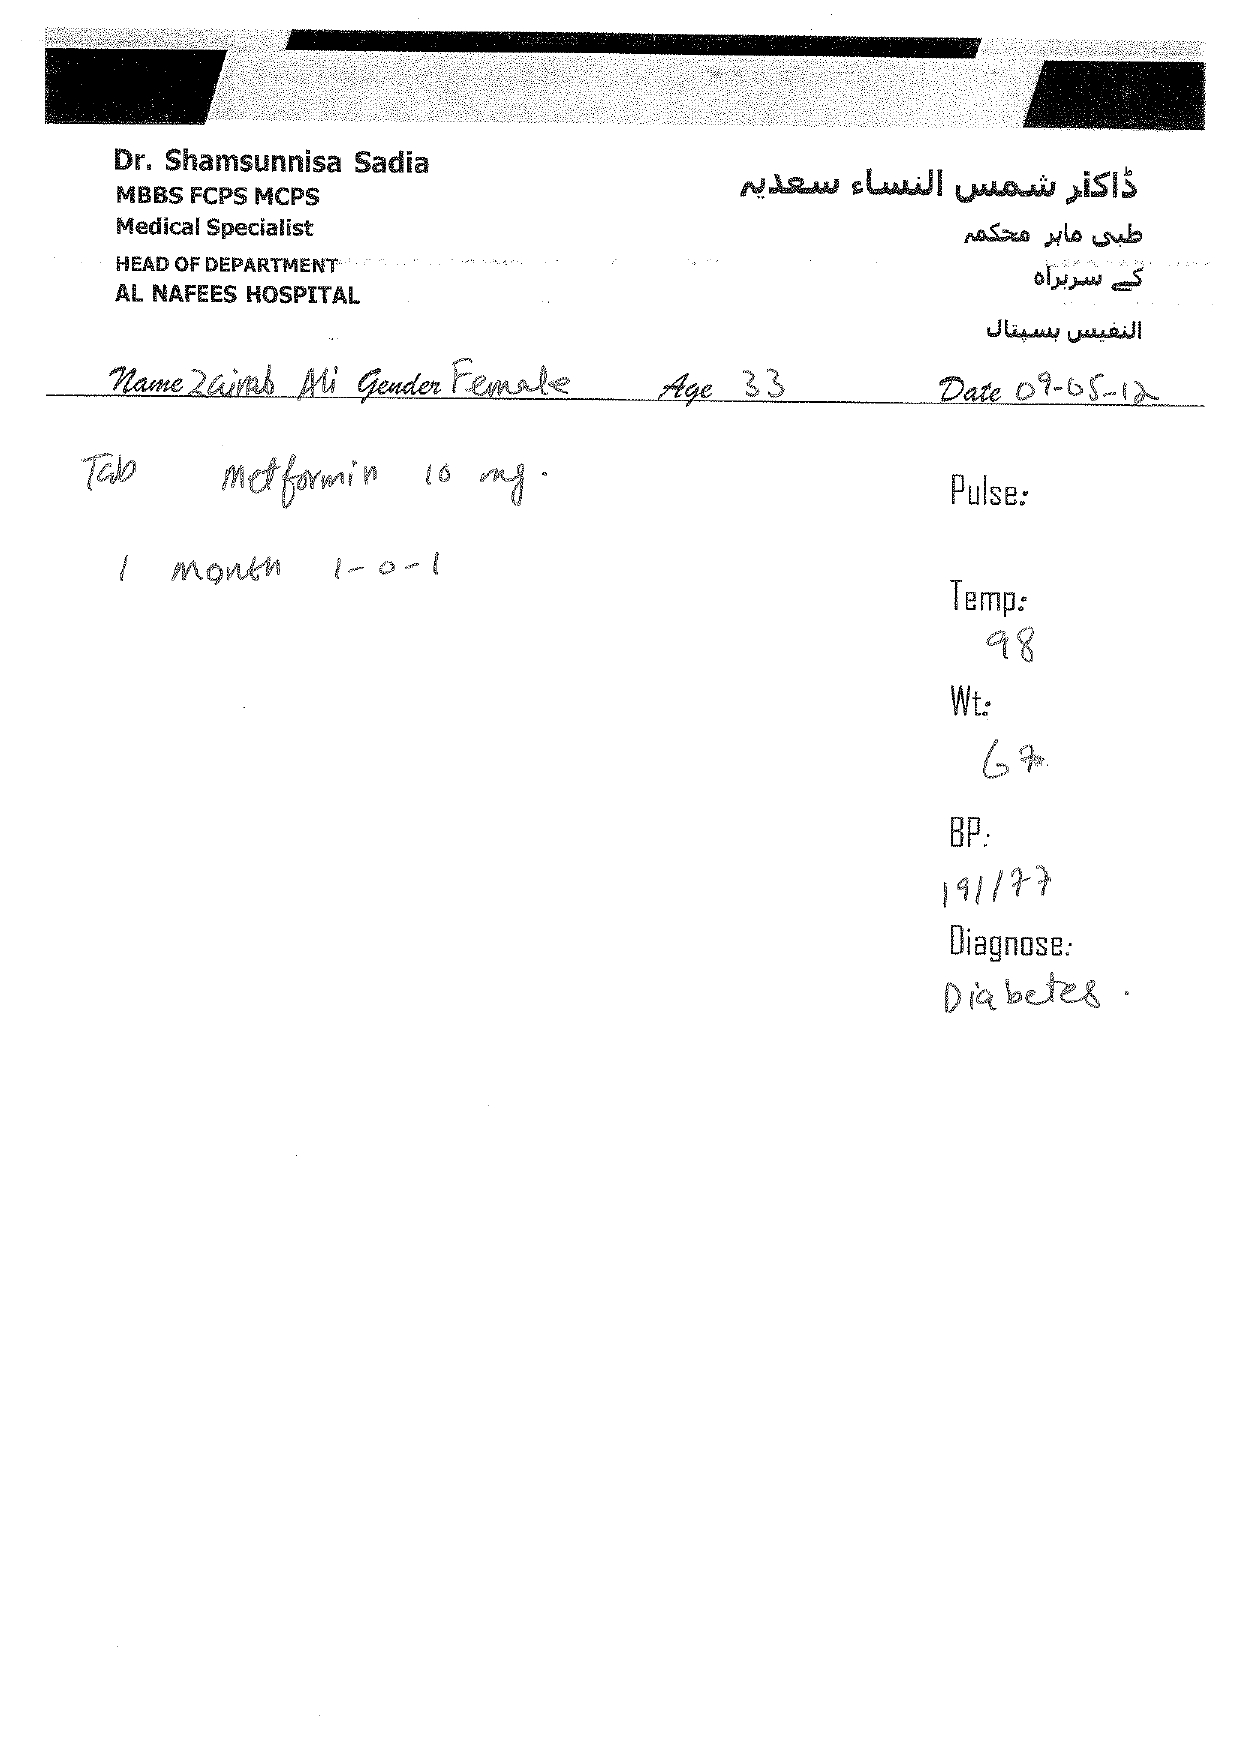 Dr. Shamsunnisa Sadia
MBBS FCPS MCPS
Medical Specialist
HEAD OF DEPARTMENT
AL NAFEES HOSPITAL
ڈاکٹر شمس النساء سعدیہ
طبی ماہر محکمہ
کے سربراہ
النفیس ہسپتال
Name Zainab Ali Gender Female Age 33 Date 09-05-12
Tab Metformin 10 mg.
1 month 1-0-1
Pulse:
Temp:
98
Wt:
67
BP:
191/77
Diagnose:
Diabetes.